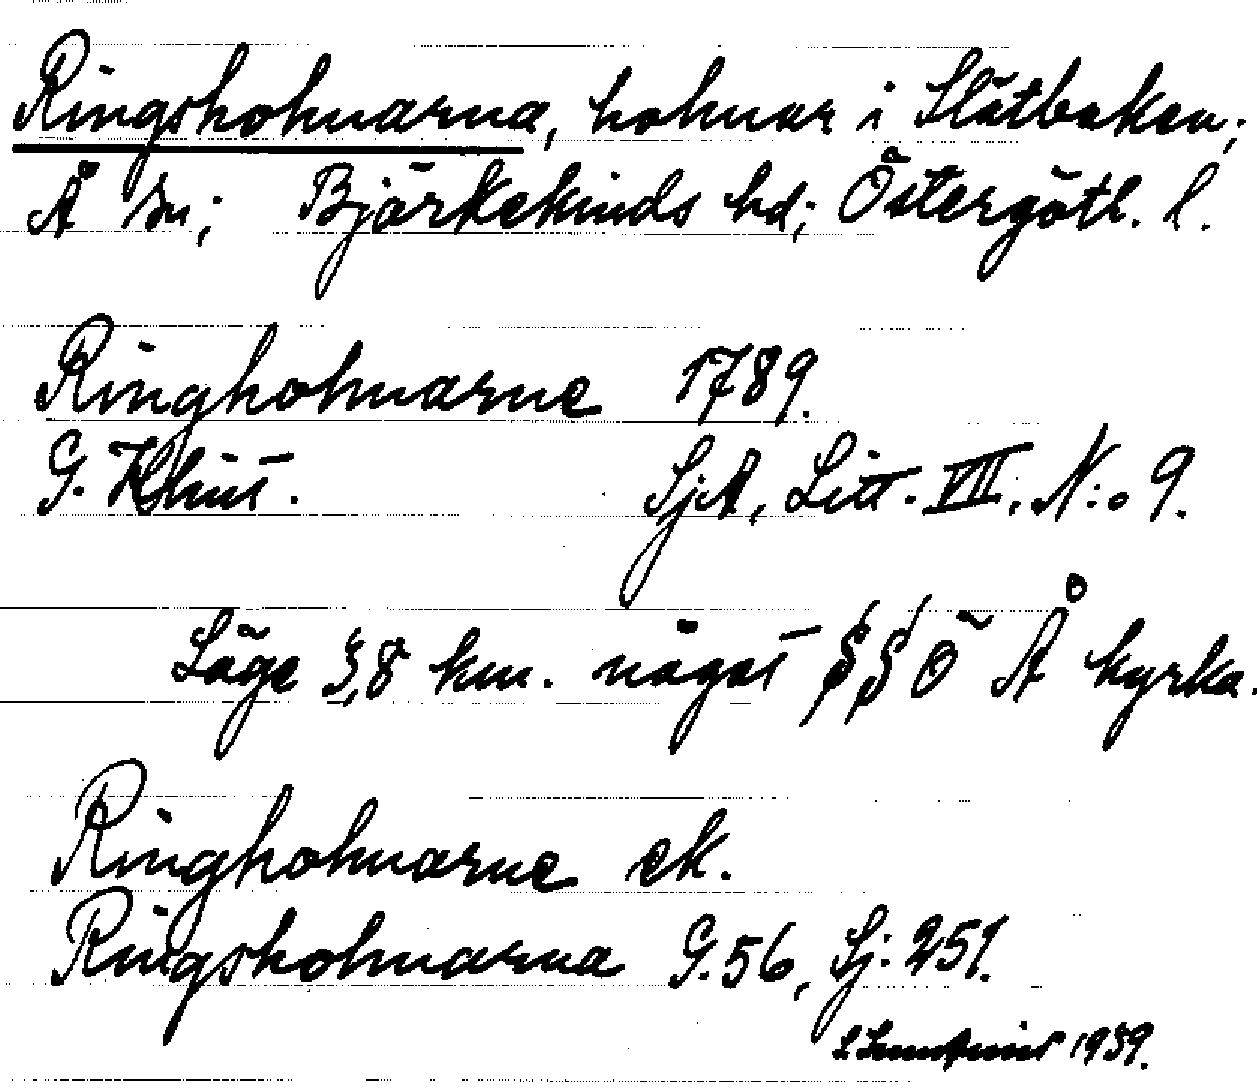 Ringsholmarna, holmar i Slätbaken;
Å sn; Björkekinds hd; Östergötl. l.
Ringholmarne 1789.
G. SjA, Litt. VII. N:o 9.
Läge 3,8 km. något Ö Å kyrka.
Ringholmarne ek.
Ringsholmarna G. 56, Sj: 251.
1939.